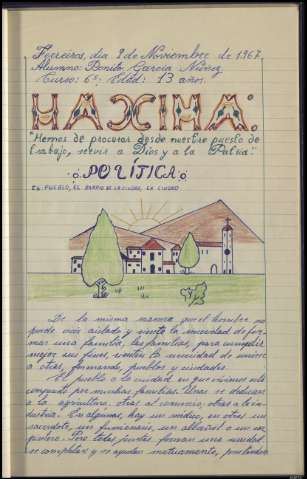 Ferreiros, día 8 de Noviembre de 1967
Alumno: Benito García Núñez
Curso: 6º: Edad: 13 años.
MAXIMA:
"Hemos de procurar desde nuestro puesto de
trabajo, servir a Dios y a la Patria."
POLÍTICA
EL PUEBLO, EL BARRIO DE LA CIUDAD, LA CIUDAD
De la misma manera que el hombre no
puede vivir aislado y siente la necesidad de for-
mar una familia, las familias, para cumplir
mejor sus fines, sienten la necesidad de unirse
a otras, formando, pueblos y ciudades.
El pueblo o la ciudad en que vivimos está
compuesto por muchas familias. Unas se dedican
a la agricultura, otras al comercio, otras a la in-
dustria. En algunas, hay un médico, en otras un
sacerdote, un funcionario, un albañil o un ca-
Pero todas juntas forman una unidad.
se completan y se ayudan mutuamente,